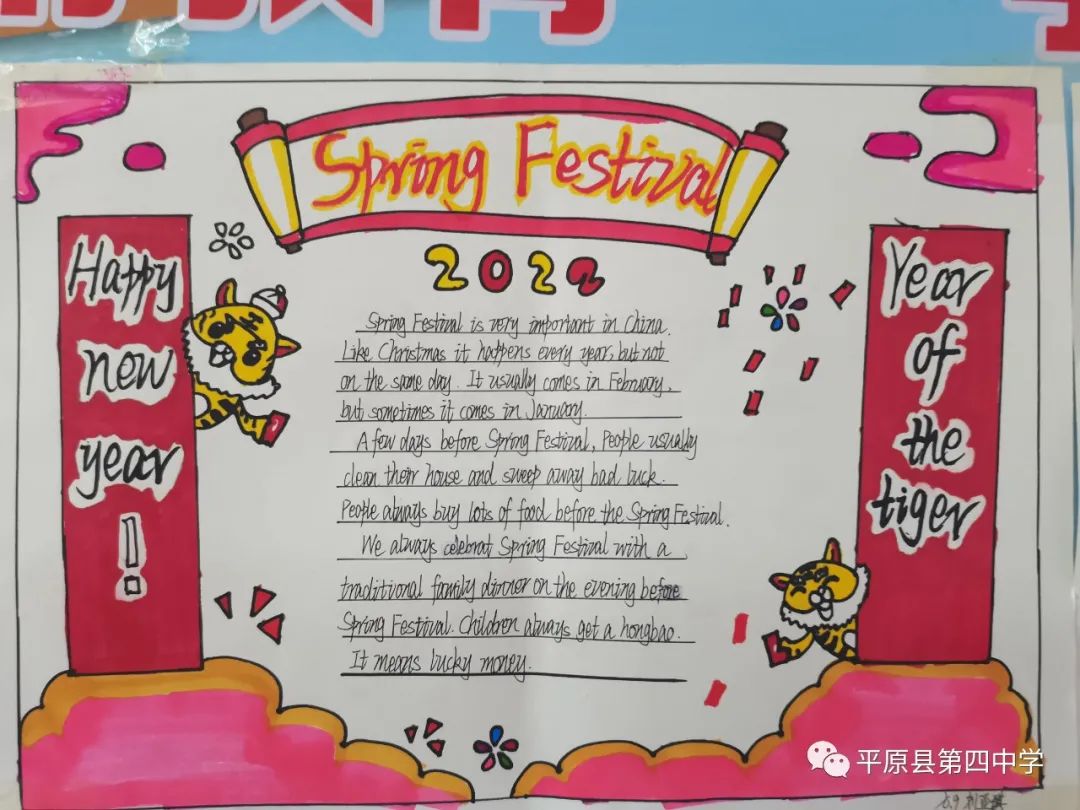 教育
Spring Festival
2022
Happy
new
year
!
Year
of
the
tiger
Spring Festival is very important in China.
Like Christmas it happens every year, but not
on the same day. It usually comes in February,
but sometimes it comes in January.
A few days before Spring Festival, People usually
clean their house and sweep away bad luck.
People always buy lots of food before the Spring Festival.
We always celebrat Spring Festival with a
traditional family dinner on the evening before
Spring Festival. Children always get a hongbao.
It means lucky money.
平原县第四中学